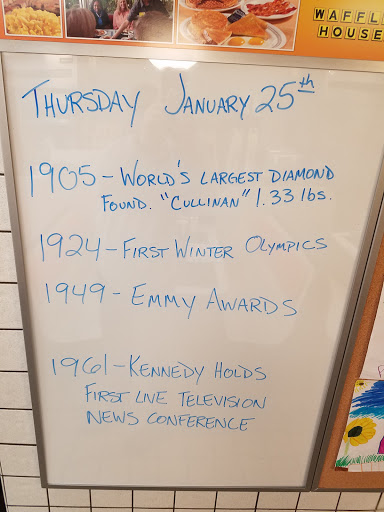 WAFFLE
HOUSE
THURSDAY JANUARY 25th
1905 - WORLD'S LARGEST DIAMOND
FOUND. "CULLINAN" 1.33 lbs.
1924 - FIRST WINTER OLYMPICS
1949 - EMMY AWARDS
1961 - KENNEDY HOLDS
FIRST LIVE TELEVISION
NEWS CONFERENCE